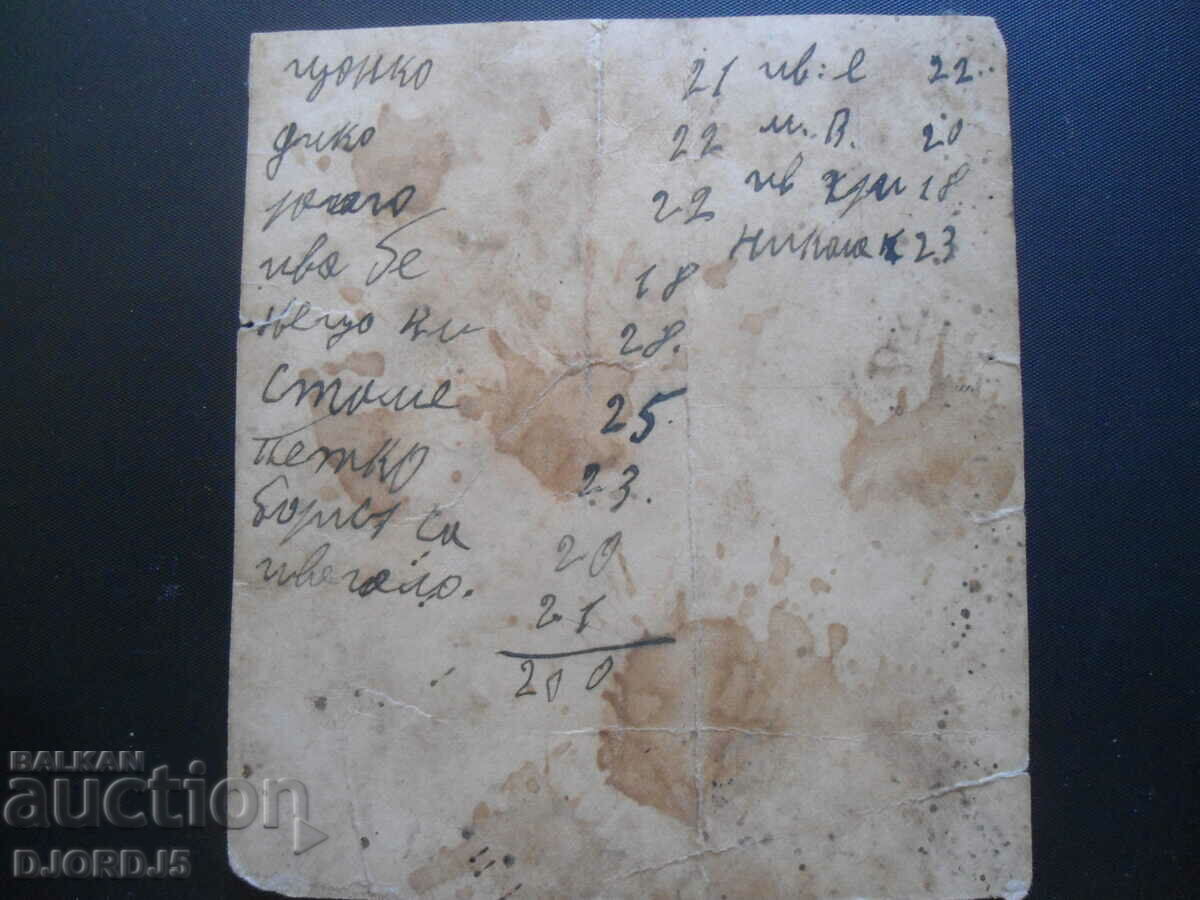 цонко 21
дико 22
22
ива бе 18
нецо ки 28.
стоме 25.
петко 23.
борис са 20
21
200
ив: е 22..
м. в. 20
ив хри 18
никола к 23
BALKAN
auction
DJORDJ5